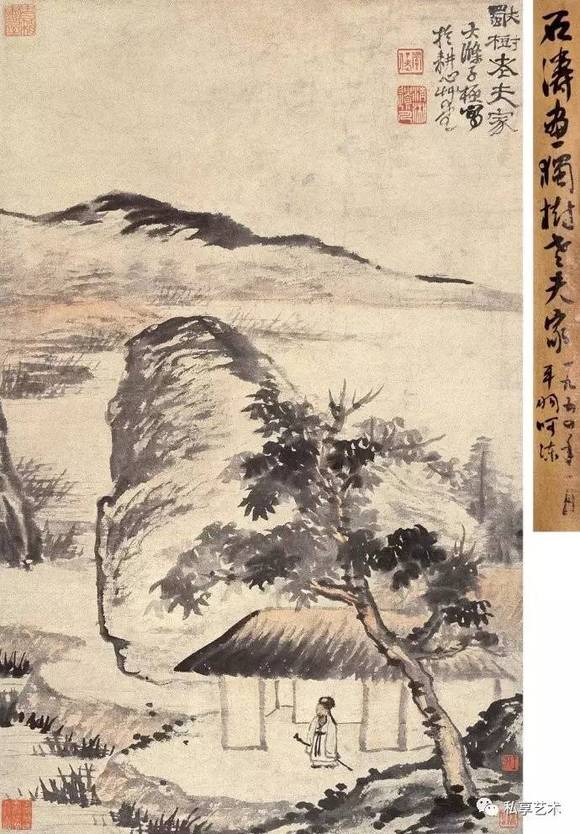 獨樹老夫家
大滌子極寫
於耕心草堂
石濤画獨樹老夫家
一九五四年一月
呵冻
私享艺术